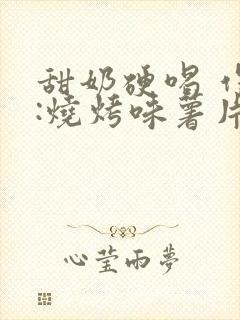 甜奶硬唱 作
:燒烤味薯片
心莹雨夢